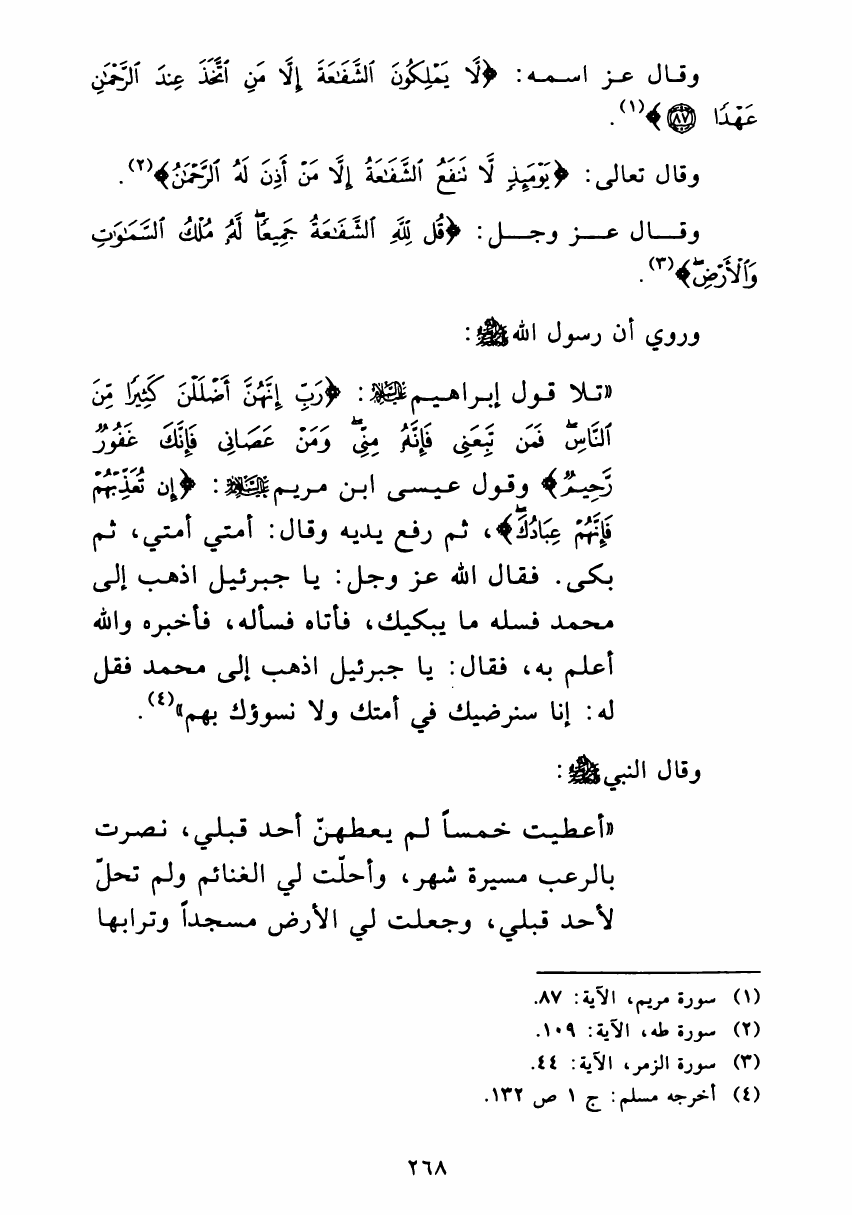 وقال عز اسمه: ﴿لَّا يَمْلِكُونَ ٱلشَّفَـٰعَةَ إِلَّا مَنِ ٱتَّخَذَ عِندَ ٱلرَّحْمَـٰنِ
عَهْدًا ۝٨٧﴾(١).
وقال تعالى: ﴿يَوْمَئِذٍ لَّا تَنفَعُ ٱلشَّفَـٰعَةُ إِلَّا مَنْ أَذِنَ لَهُ ٱلرَّحْمَـٰنُ﴾(٢).
وقال عز وجل: ﴿قُل لِّلَّهِ ٱلشَّفَـٰعَةُ جَمِيعًاۖ لَّهُۥ مُلْكُ ٱلسَّمَـٰوَٰتِ
وَٱلْأَرْضِۖ﴾(٣).
وروي أن رسول الله ﷺ:
«تلا قول إبراهيم عليه السلام: ﴿رَبِّ إِنَّهُنَّ أَضْلَلْنَ كَثِيرًا مِّنَ
ٱلنَّاسِۖ فَمَن تَبِعَنِى فَإِنَّهُۥ مِنِّىۖ وَمَنْ عَصَانِى فَإِنَّكَ غَفُورٌ
رَّحِيمٌ﴾ وقول عيسى ابن مريم عليه السلام: ﴿إِن تُعَذِّبْهُمْ
فَإِنَّهُمْ عِبَادُكَۖ﴾، ثم رفع يديه وقال: أمتي أمتي، ثم
بكى. فقال الله عز وجل: يا جبرئيل اذهب إلى
محمد فسله ما يبكيك، فأتاه فسأله، فأخبره والله
أعلم به، فقال: يا جبرئيل اذهب إلى محمد فقل
له: إنا سنرضيك في أمتك ولا نسوؤك بهم»(٤).
وقال النبي ﷺ:
«أعطيت خمساً لم يعطهنّ أحد قبلي، نصرت
بالرعب مسيرة شهر، وأحلّت لي الغنائم ولم تحلّ
لأحد قبلي، وجعلت لي الأرض مسجداً وترابها
(١) سورة مريم، الآية: ٨٧.
(٢) سورة طه، الآية: ١٠٩.
(٣) سورة الزمر، الآية: ٤٤.
(٤) أخرجه مسلم: ج ١ ص ١٣٢.
٢٦٨